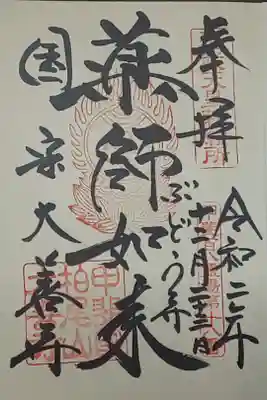 奉拝
令和二年
十二月二十三日
薬師如来
ぶどう寺
国宝大善寺
柏尾山